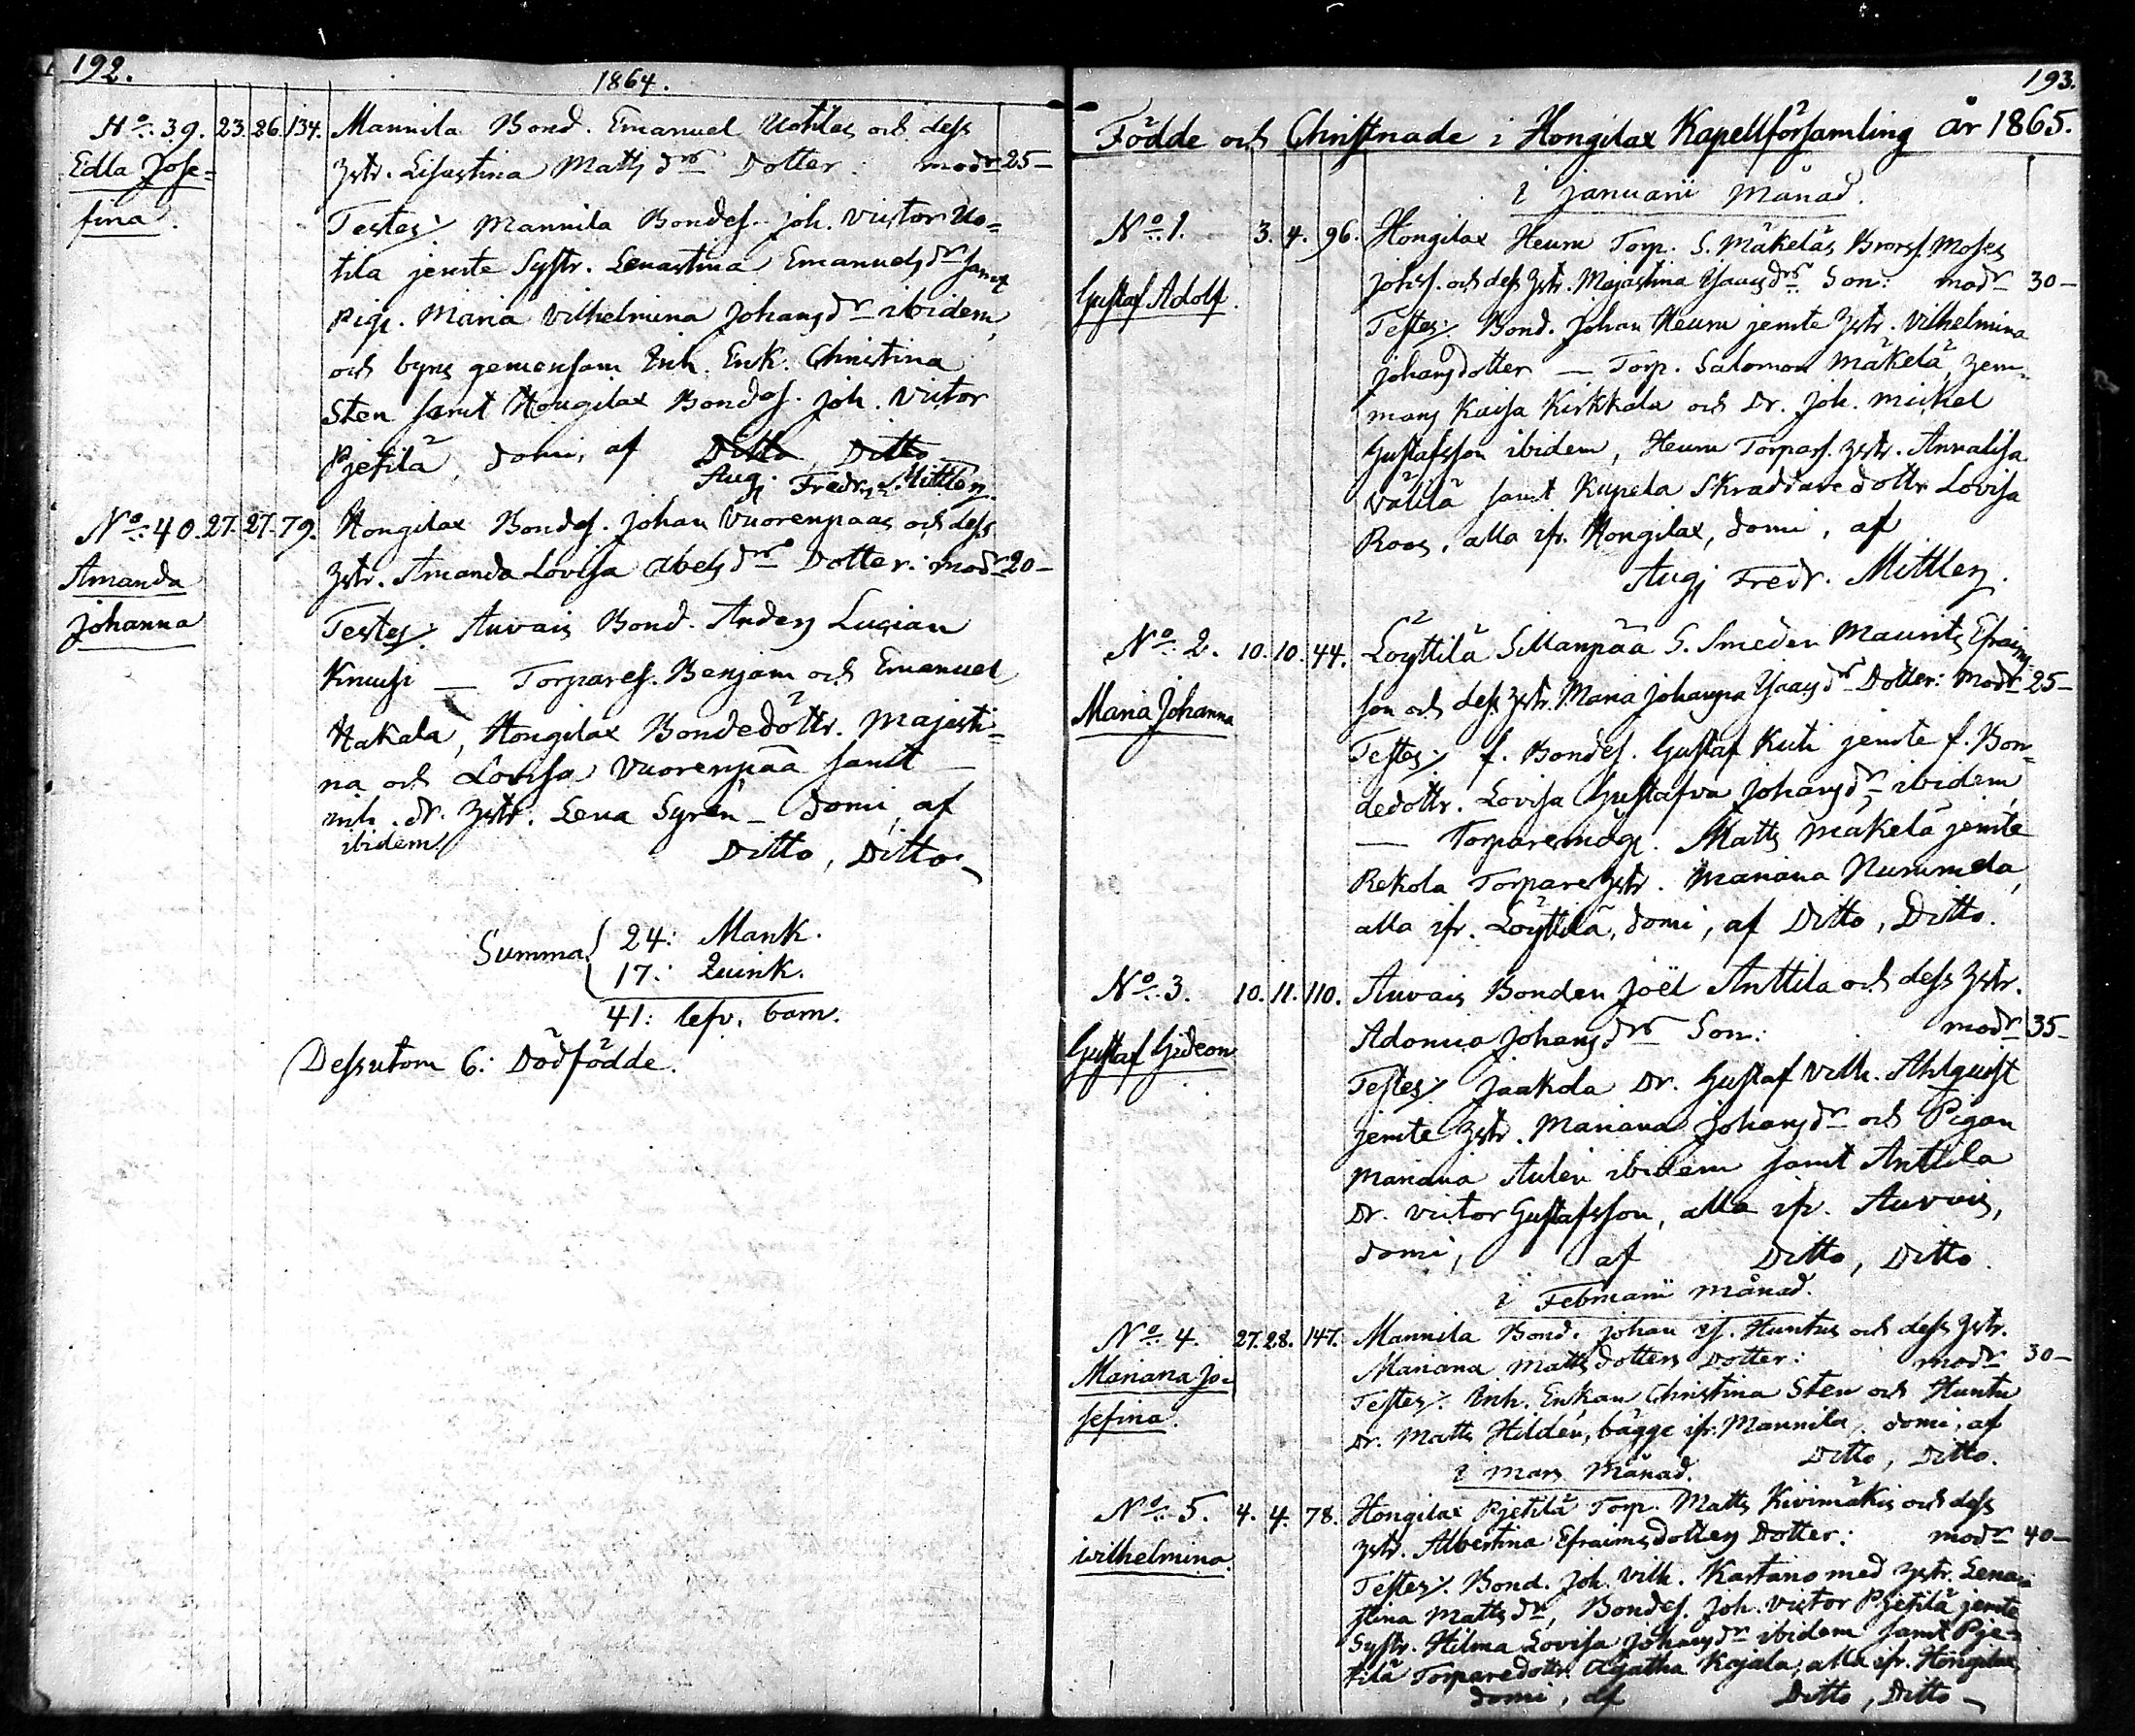 192.
1864.
No. 39. 23. 26. 134. Mannila Bond. Emanuel Uotilas och dess
Edla Jose= hstr. Lisastina Matts drs Dotter: modr 25-
fina. Testes: Mannila Bondes. Joh. Victor Uo=
tila jemte Systr. Lenastina Emanuels dr samt
Pig. Maria Vilhelmina Johans dr ibidem,
och byns gemensam Inh. Enk. Christina
Sten samt Hongilax Bondes. Joh. Victor
Pjetilä, domi, af Ditto, Ditto
Aug. Fredr. Mittler.
No. 40. 27. 27. 79. Hongilax Bondes. Johan Vuorenpääs och dess
Amanda hstr. Amanda Lovisa Abels drs Dotter: modr 20-
Johanna Testes: Auvais Bond. Anders Lucian
Knuusi — Torpares. Benjam och Emanuel
Hakala, Hongilax Bondedöttr. Majasti=
na och Lovisa Vuorenpää samt
inh. dr. hstr. Lena Syrén — domi, af
ibidem Ditto, Ditto
Summa 24: Mank.
17: Quink.
41: lefv. barn.
Dessutom 6: Dödfödde.
193.
Födde och Christnade i Hongilax Kapellförsamling år 1865.
i Januarii månad.
No. 1. 3. 4. 96. Hongilax Heurn Torp. S. Mäkeläs Brors. Moses
Gustaf Adolf. Johs. och dess hstr. Majastina Isaacs drs Son: modr 30-
Testes: Bond. Johan Heurn jemte hstr. Vilhelmina
Johansdotter — Torp. Salomon Mäkelä, hem=
mans Kaisa Kirkkala och Dr. Joh. Mickel
Gustafsson ibidem, Heurn Torpars. hstr. Annalisa
Välilä samt Kupela Skraddare dottr Lovisa
Roos, alla ifr. Hongilax, domi, af
Aug. Fredr. Mittler.
No. 2. 10. 10. 44. Löyttilä Sillanpää S. Smeden Maurits Efraims
Maria Johanna son och dess hstr. Maria Johanna Isaacs drs Dotter: modr 25-
Testes: f. Bondes. Gustaf Kuti jemte f. Bon=
dedottr. Lovisa Gustafva Johans dr ibidem,
— Torparemåg. Matts Mäkelä jemte
Rekola Torpare hstr. Mariana Nummela,
alla ifr. Löyttilä, domi, af Ditto, Ditto.
No. 3. 10. 11. 110. Auvais Bonden Joël Anttila och dess hstr.
Gustaf Gideon Adamia Johans drs Son: modr 35-
Testes: Jaakola Dr. Gustaf Vilh. Ahlquist
jemte hstr. Mariana Johans dr och Pigan
Mariana Aulén ibidem samt Anttila
Dr. Victor Gustafsson, alla ifr. Auvais,
domi, af Ditto, Ditto.
i Februarii månad.
No. 4. 27. 28. 147. Mannila Bond. Johan Is. Huntus och dess hstr.
Mariana Jo= Mariana Mattsdotters Dotter: modr 30-
sefina. Testes: Inh. Enkan Christina Sten och Huntu
Dr. Matts Hildén, bägge ifr. Mannila, domi, af
Ditto, Ditto.
i Mars månad.
No. 5. 4. 4. 78. Hongilax Pjetilä Torp. Matts Kivimäkis och dess
Wilhelmina. hstr. Albertina Efraimsdotters Dotter: modr 40-
Testes: Bond. Joh. Vilh. Kartano med hstr. Lena=
stina Matts dr, Bondes. Joh. Victor Pjetilä jemte
Systr. Hilma Lovisa Johans dr ibidem samt Pje=
tilä Torparedottr. Agatha Kojala, alla ifr. Hongilax,
domi, af Ditto, Ditto